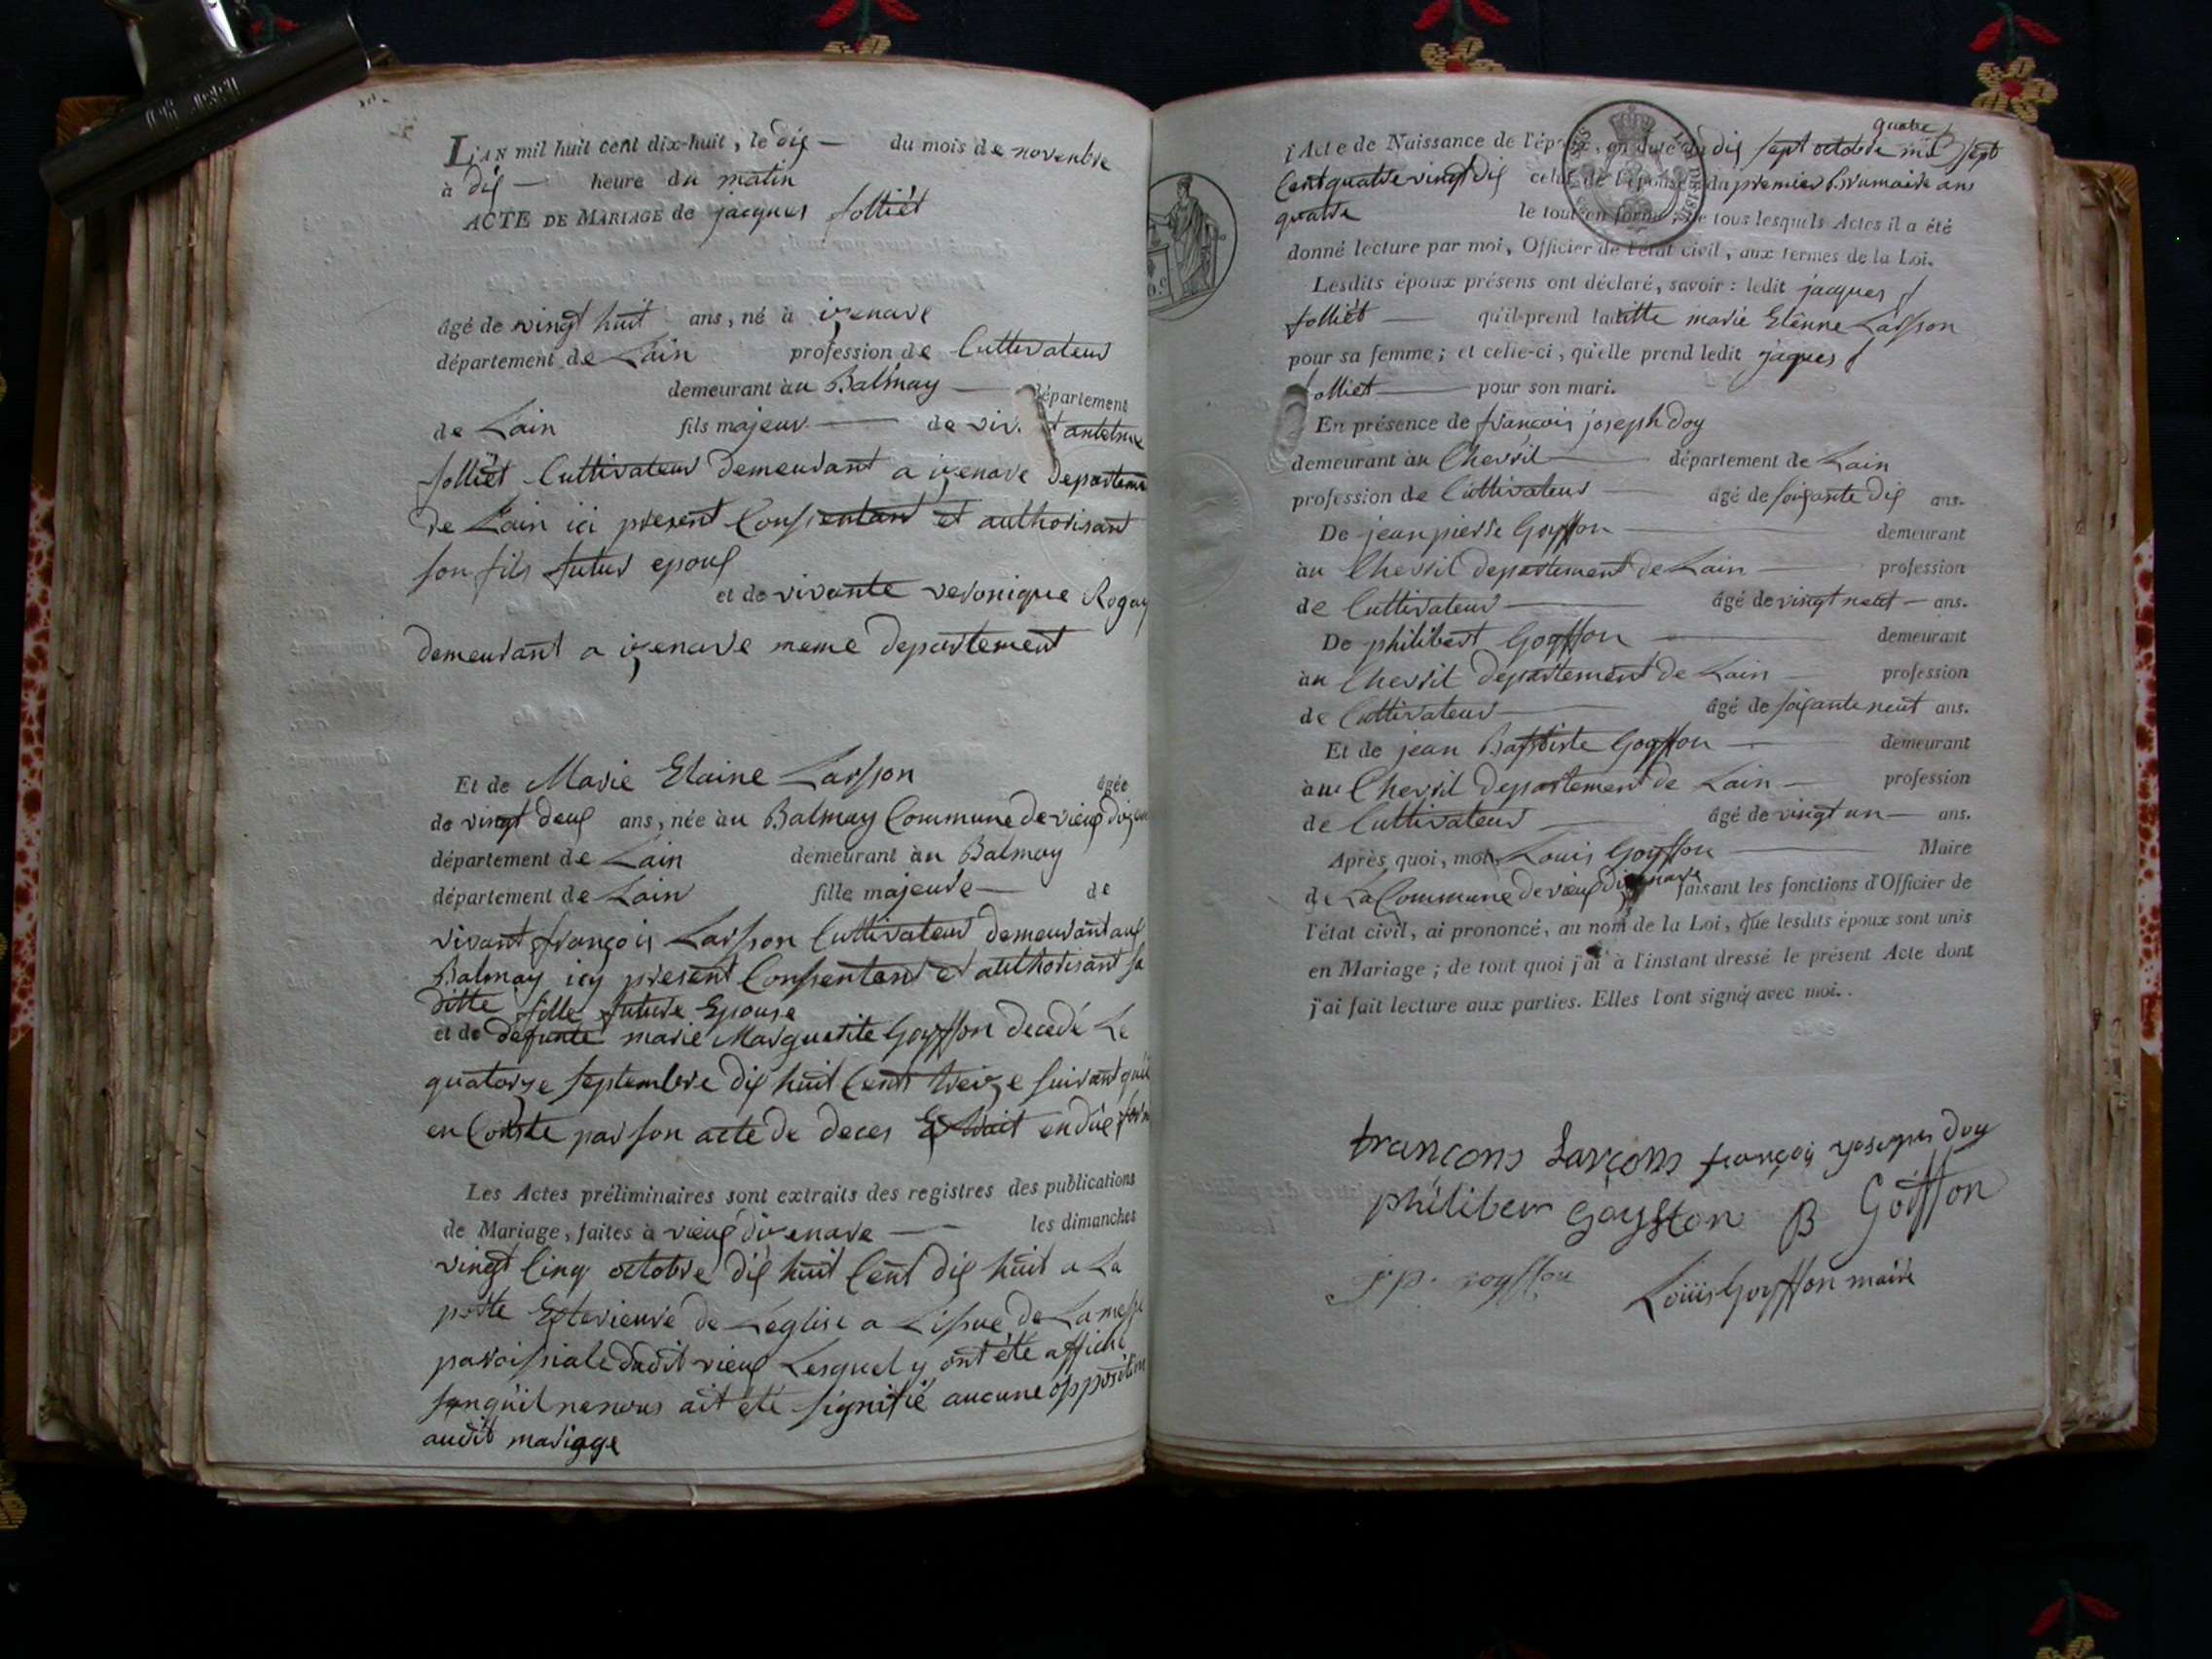 L'AN mil huit cent dix-huit, le dix — du mois de novembre
à dix — heure du matin
ACTE DE MARIAGE de jacques folliet
âgé de vingt huit ans, né à izenave
département de Lain profession de Cultivateur
demeurant au Balmay — département
de Lain fils majeur — de viv. t antelme
folliet Cultivateur demeurant a izenave departeme
de Lain ici present Consentant et authorisant
son fils futur epoux
et de vivante veronique Rogay
demeurant a izenave meme departement
Et de Marie Elaine Larsson âgée
de vingt deux ans, née au Balmay Commune de vieux dizen
département de Lain demeurant au Balmay
département de Lain fille majeure — de
vivant françois Larsson Cultivateur demeurant aux
Balmay icy present Consentant et authorisant sa
ditte fille future Epouse
et de defunte marie Marguerite Goyffon decedé Le
quatorze septembre dix huit Cent treize suivant qu'il
en Conste par son acte de deces Extrait en düe form
Les Actes préliminaires sont extraits des registres des publications
de Mariage, faites à vieux dizenave — les dimanches
vingt Cinq octobre dix huit Cent dix huit a La
porte Exterieure de Leglise a Lissue de La messe
paroissiale dudit vieux Lesquel y ont été affiché
sanquil ne nous ait été signifié aucune opposition
audit mariage
l'Acte de Naissance de l'époux, en date du dix sept octobre mil quatre sept
Cent quatre vingt dix celui de l'épouse du premier Brumaire ans
quatre le tout en forme; de tous lesquels Actes il a été
donné lecture par moi, Officier de l'état civil, aux termes de la Loi.
Lesdits époux présens ont déclaré, savoir: ledit jacques
folliet — qu'il prend laditte marie Elênne Larsson
pour sa femme; et celle-ci, qu'elle prend ledit jaques
folliet — pour son mari.
En présence de françois joseph Doy
demeurant au Chevril — département de Lain
profession de Cultivateur — âgé de soixante dix ans.
De jean pierre Goyffon — demeurant
au Chevril departement de Lain — profession
de Cultivateur — âgé de vingt neuf — ans.
De philibert Goyffon — demeurant
au Chevril departement de Lain — profession
de Cultivateur — âgé de soixante neuf ans.
Et de jean Baptiste Goyffon — demeurant
au Chevril departement de Lain — profession
de Cultivateur — âgé de vingt un — ans.
Après quoi, moi, Louis Goyffon — Maire
de La Commune de vieux dizenave faisant les fonctions d'Officier de
l'état civil, ai prononcé, au nom de la Loi, que lesdits époux sont unis
en Mariage; de tout quoi j'ai à l'instant dressé le présent Acte dont
j'ai fait lecture aux parties. Elles l'ont signé avec moi.
francons Larçons françois Doy
philiber goyffon B Goiffon
Louis Goyffon maire